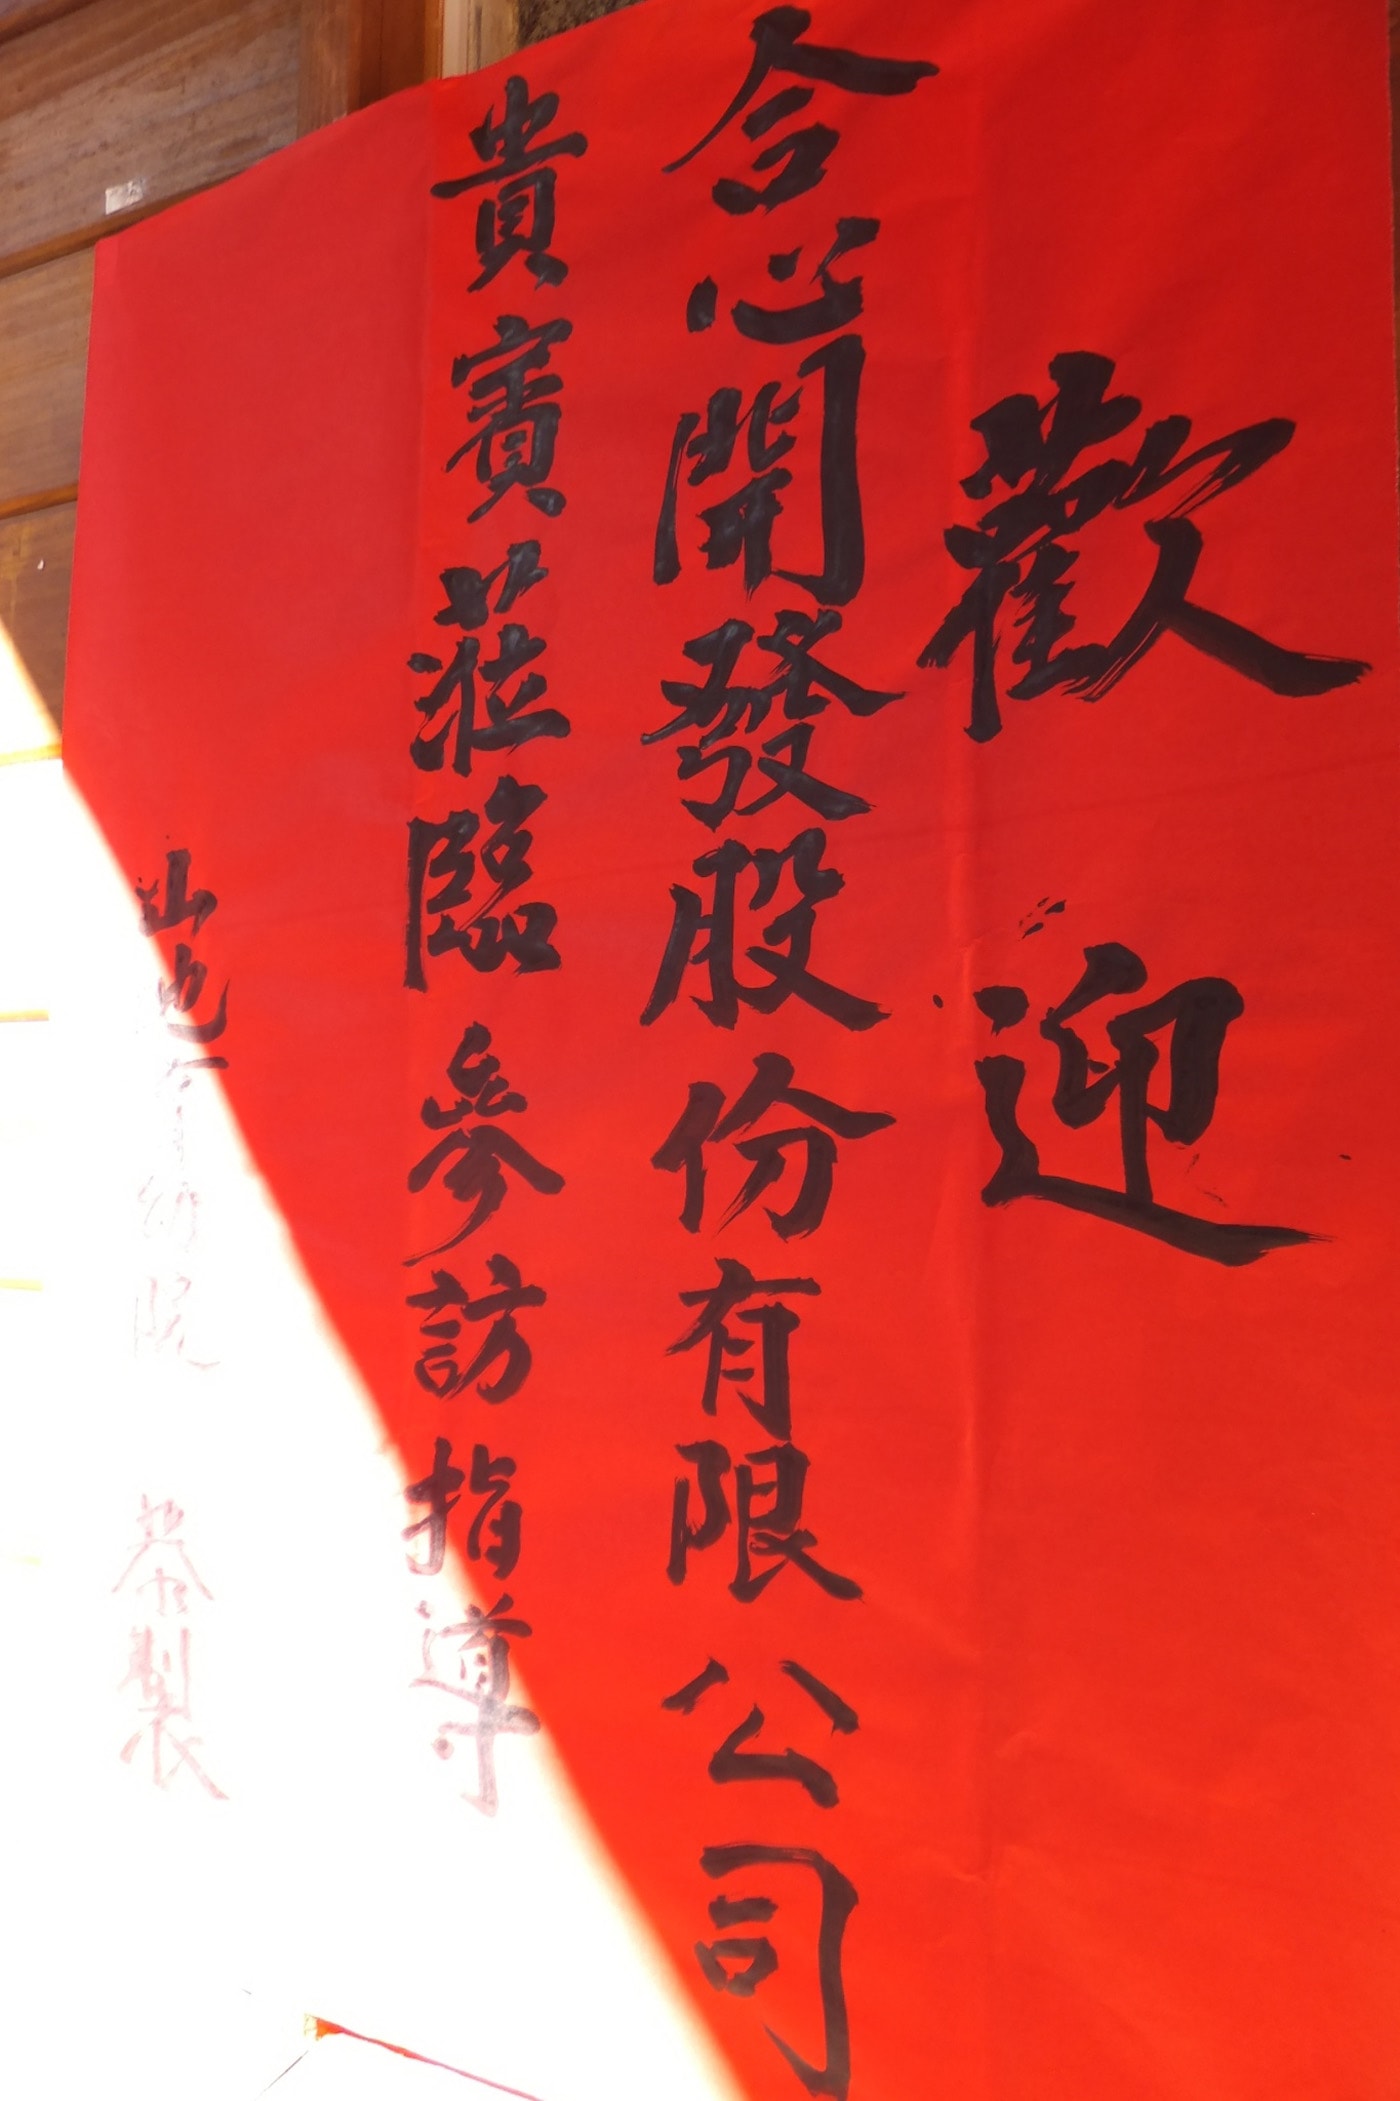 歡迎
合心開發股份有限公司
貴賓蒞臨參訪指導
山也 院 恭製